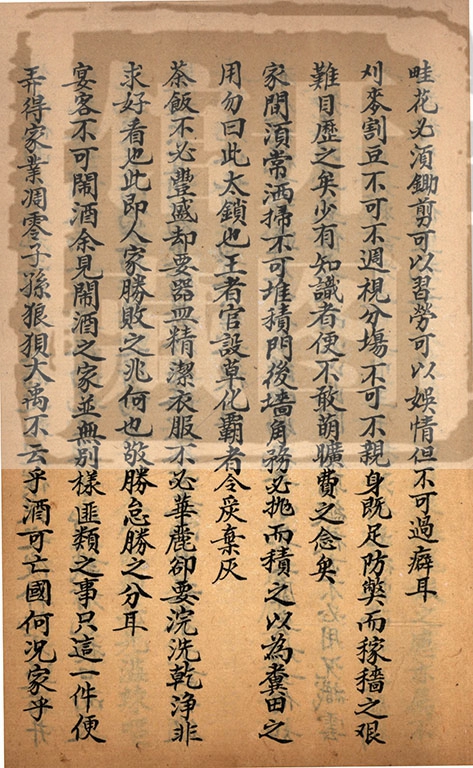 畦花必須鋤剪可以習勞可以娛情但不可過癖耳
刈麥割豆不可不週視分塲不可不親身既足防獘而稼穡之艰
難目歷之矣少有知識者便不敢萌曠費之念矣
家間須常洒掃不可堆積門後墻角務必挑而積之以為糞田之
用勿曰此太鎖也王者官設草化覇者令爰棄灰
茶飯不必豐盛却要器皿精潔衣服不必華麗卻要浣洗乾浄非
求好看也此即人家勝敗之兆何也敬勝怠勝之分耳
宴客不可鬧酒余見鬧酒之家並無别樣匪類之事只這一件便
弄得家業凋零子孫狼狽大禹不云乎酒可亡國何況家乎